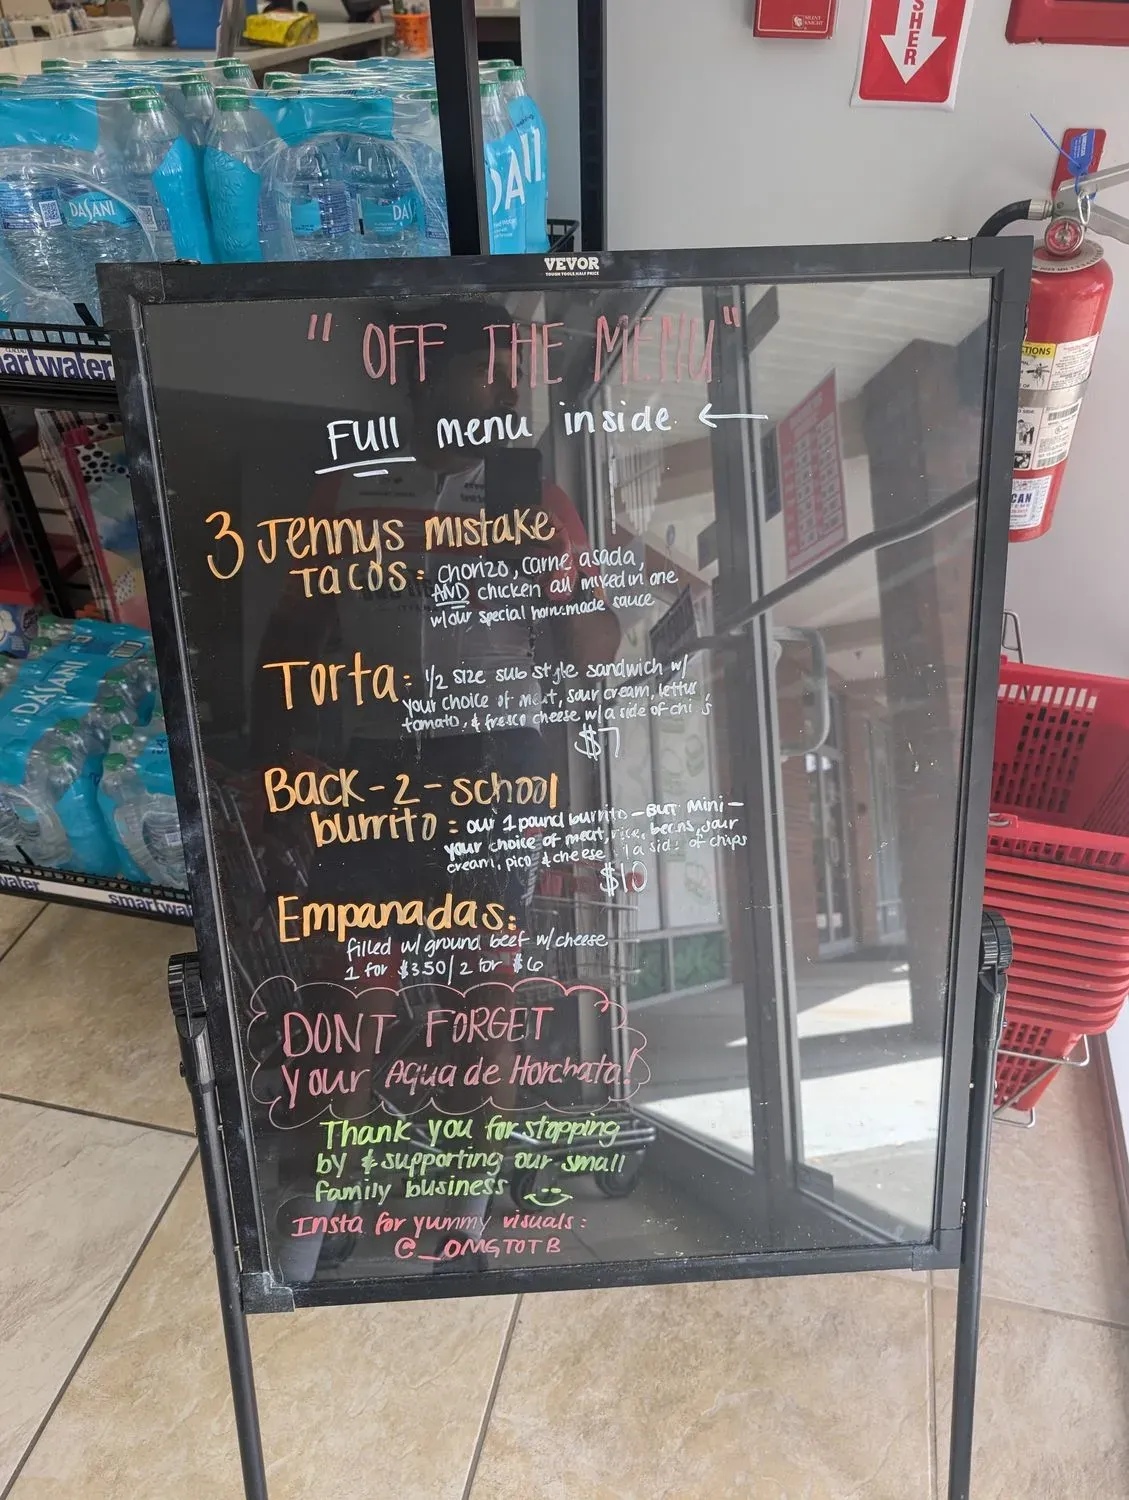 SILENT KNIGHT
SHER
DASANI
DAS
DASANI
smartwater
VEVOR
TOUGH TOOLS, HALF PRICE
" OFF THE MENU"
FULL menu inside ←
3 Jennys mistake
TACOS: chorizo, carne asada,
AND chicken all mixed in one
w/our special homemade sauce
Torta: 1/2 size sub style sandwich w/
your choice of meat, sour cream, lettus
tomato, & fresco cheese w/a side of chi s
$7
Back-2-school
burrito: our 1 pound burrito - BUT mini-
your choice of meat, rice, beans, sour
cream, pico & cheese a side of chips
$10
Empanadas:
filled w/ground beef w/cheese
1 for $350/2 for $6
DONT FORGET
your Aqua de Horchata!
Thank you for stopping
by & supporting our small
family business
Insta for yummy visuals:
@_OMGTOTB
DASANI
water
smartwat